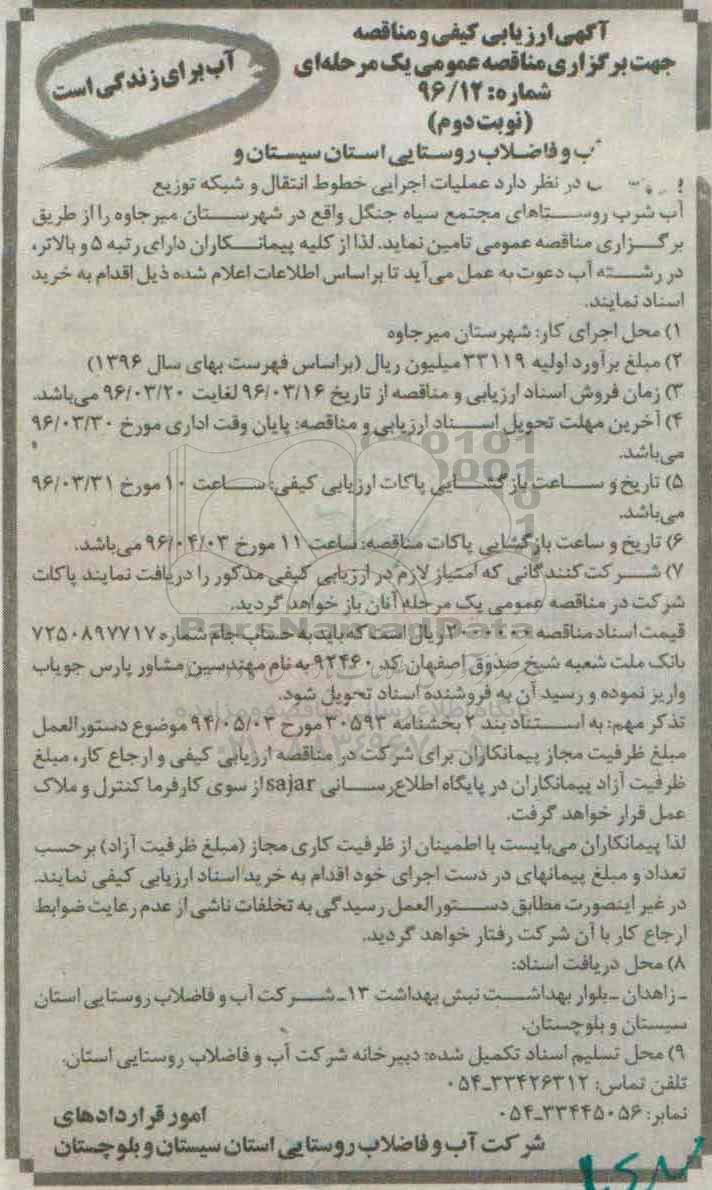 آگهی ارزیابی کیفی و مناقصه
جهت برگزاری مناقصه عمومی یک مرحله‌ای
شماره: ۹۶/۱۲
(نوبت دوم)
آب برای زندگی است
آب و فاضلاب روستایی استان سیستان و
در نظر دارد عملیات اجرایی خطوط انتقال و شبکه توزیع
آب شرب روستاهای مجتمع سیاه جنگل واقع در شهرستان میرجاوه را از طریق
برگزاری مناقصه عمومی تامین نماید. لذا از کلیه پیمانکاران دارای رتبه ۵ و بالاتر،
در رشته آب دعوت به عمل می‌آید تا براساس اطلاعات اعلام شده ذیل اقدام به خرید
اسناد نمایند.
۱) محل اجرای کار: شهرستان میرجاوه
۲) مبلغ برآورد اولیه ۳۳۱۱۹ میلیون ریال (براساس فهرست بهای سال ۱۳۹۶)
۳) زمان فروش اسناد ارزیابی و مناقصه از تاریخ ۹۶/۰۳/۱۶ لغایت ۹۶/۰۳/۲۰ می‌باشد.
۴) آخرین مهلت تحویل اسناد ارزیابی و مناقصه: پایان وقت اداری مورخ ۹۶/۰۳/۳۰
می‌باشد.
۵) تاریخ و ساعت بازگشایی پاکات ارزیابی کیفی: ساعت ۱۰ مورخ ۹۶/۰۳/۳۱
می‌باشد.
۶) تاریخ و ساعت بازگشایی پاکات مناقصه: ساعت ۱۱ مورخ ۹۶/۰۴/۰۳ می‌باشد.
۷) شرکت کنندگانی که امتیاز لازم در ارزیابی کیفی مذکور را دریافت نمایند پاکات
شرکت در مناقصه عمومی یک مرحله آنان باز خواهد گردید.
قیمت اسناد مناقصه ۲۰۰۰۰۰۰ ریال است که باید به حساب جام شماره ۷۲۵۰۸۹۷۷۱۷
بانک ملت شعبه شیخ صدوق اصفهان کد ۹۲۴۶۰ به نام مهندسین مشاور پارس جویاب
واریز نموده و رسید آن به فروشنده اسناد تحویل شود.
تذکر مهم: به استناد بند ۲ بخشنامه ۳۰۵۹۳ مورخ ۹۴/۰۵/۰۳ موضوع دستورالعمل
مبلغ ظرفیت مجاز پیمانکاران برای شرکت در مناقصه ارزیابی کیفی و ارجاع کار، مبلغ
ظرفیت آزاد پیمانکاران در پایگاه اطلاع‌رسانی sajar از سوی کارفرما کنترل و ملاک
عمل قرار خواهد گرفت.
لذا پیمانکاران می‌بایست با اطمینان از ظرفیت کاری مجاز (مبلغ ظرفیت آزاد) برحسب
تعداد و مبلغ پیمانهای در دست اجرای خود اقدام به خرید اسناد ارزیابی کیفی نمایند.
در غیر اینصورت مطابق دستورالعمل رسیدگی به تخلفات ناشی از عدم رعایت ضوابط
ارجاع کار با آن شرکت رفتار خواهد گردید.
۸) محل دریافت اسناد:
ـ زاهدان ـ بلوار بهداشت نبش بهداشت ۱۳ ـ شرکت آب و فاضلاب روستایی استان
سیستان و بلوچستان.
۹) محل تسلیم اسناد تکمیل شده: دبیرخانه شرکت آب و فاضلاب روستایی استان.
تلفن تماس: ۳۳۴۲۶۳۱۲ـ۰۵۴
نمابر: ۳۳۴۴۵۰۵۶ـ۰۵۴
امور قراردادهای
شرکت آب و فاضلاب روستایی استان سیستان و بلوچستان
ParsNamadData